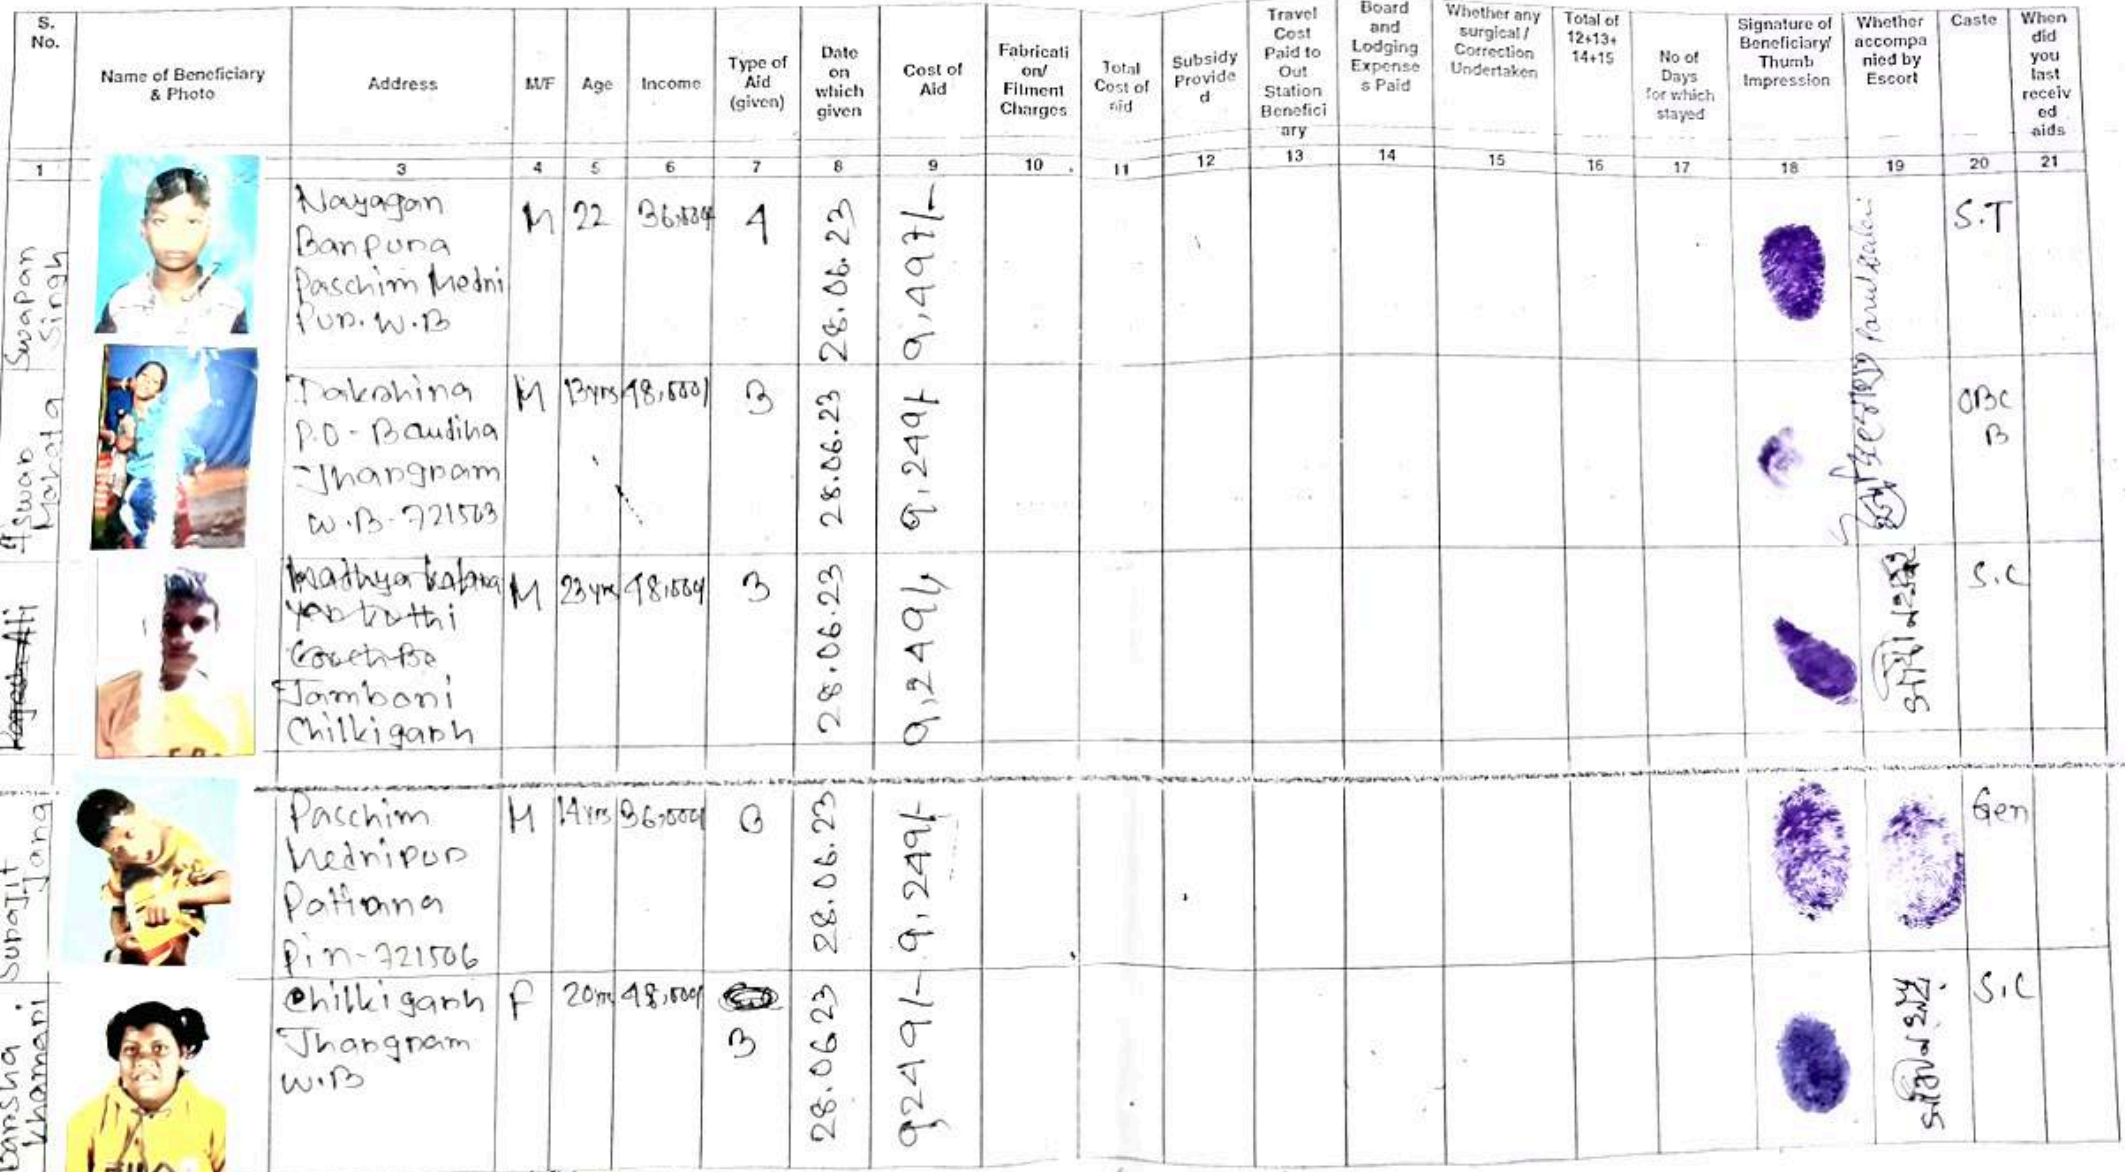 S. No.
Name of Beneficiary & Photo
Address
M/F
Age
Income
Type of Aid (given)
Date on which given
Cost of Aid
Fabricati on/ Filment Charges
Total Cost of aid
Subsidy Provide d
Travel Cost Paid to Out Station Benefici ary
Board and Lodging Expense s Paid
Whether any surgical / Correction Undertaken
Total of 12+13+ 14+15
No of Days for which stayed
Signature of Beneficiary/ Thumb Impression
Whether accompa nied by Escort
Caste
When did you last receiv ed aids
1 3 4 5 6 7 8 9 10 11 12 13 14 15 16 17 18 19 20 21
Swapan
Singh
Nayagan
Banpura
Paschim Medni
Pur. W.B
M 22 4 28.06.23 9,497/- S.T
Mahata
Dakshina
P.O - Baudiha
Jhargram
W.B - 721503
M 13yrs 3 28.06.23 9,249/- OBC
B
Ali
Jamboni
Chilkigarh
M 23yrs 3 28.06.23 9,249/- S.C
Surajit
Jana
Paschim
Mednipur
Pin-721506
M 14yrs 3 28.06.23 9,249/- Gen
Barsha
Khamari
Chilkigarh
Jhargram
W.B
F 20yrs 3 28.06.23 9249/- S.C